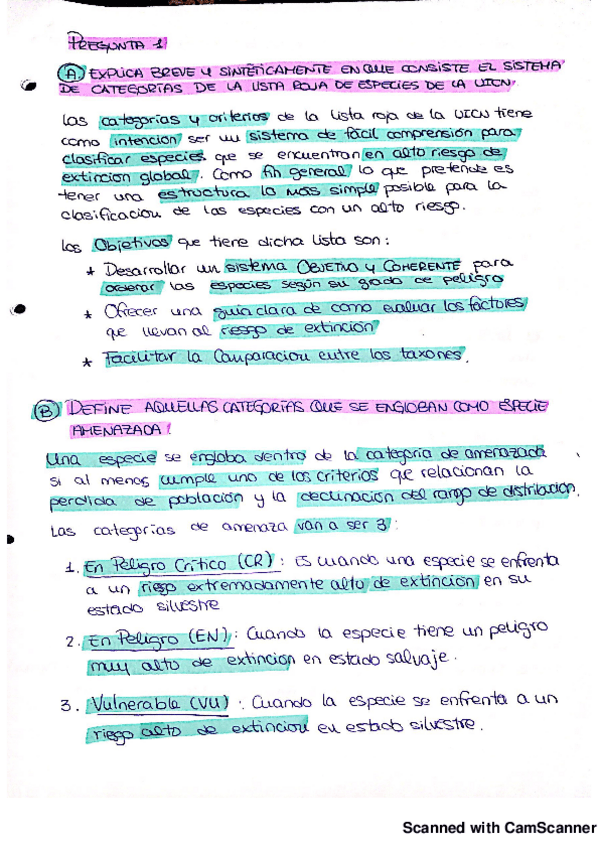 PREGUNTA 1
A) EXPLICA BREVE Y SINTÉTICAMENTE EN QUE CONSISTE EL SISTEMA
DE CATEGORÍAS DE LA LISTA ROJA DE ESPECIES DE LA UICN.
Las categorías y criterios de la lista roja de la UICN tiene
como intención ser un sistema de fácil comprensión para
clasificar especies que se encuentran en alto riesgo de
extincion global. Como fin general lo que pretende es
tener una estructura lo más simple posible para la
clasificacion de las especies con un alto riesgo.
Los Objetivos que tiene dicha lista son:
* Desarrollar un sistema OBJETIVO Y COHERENTE para
ordenar las especies según su grado de peligro
* Ofrecer una guía clara de como evaluar los factores
que llevan al riesgo de extinción
* Facilitar la Comparacion entre los taxones.
B) DEFINE AQUELLAS CATEGORÍAS QUE SE ENGLOBAN COMO ESPECIE
AMENAZADA:
Una especie se engloba dentro de la categoría de amenazada
si al menos cumple uno de los criterios que relacionan la
perdida de población y la declinación del rango de distribución.
Las categorías de amenaza van a ser 3:
1. En Peligro Crítico (CR): Es cuando una especie se enfrenta
a un riesgo extremadamente alto de extincion en su
estado silvestre
2. En Peligro (EN): Cuando la especie tiene un peligro
muy alto de extinción en estado salvaje.
3. Vulnerable (VU): Cuando la especie se enfrenta a un
riesgo alto de extincion en estado silvestre.
Scanned with CamScanner